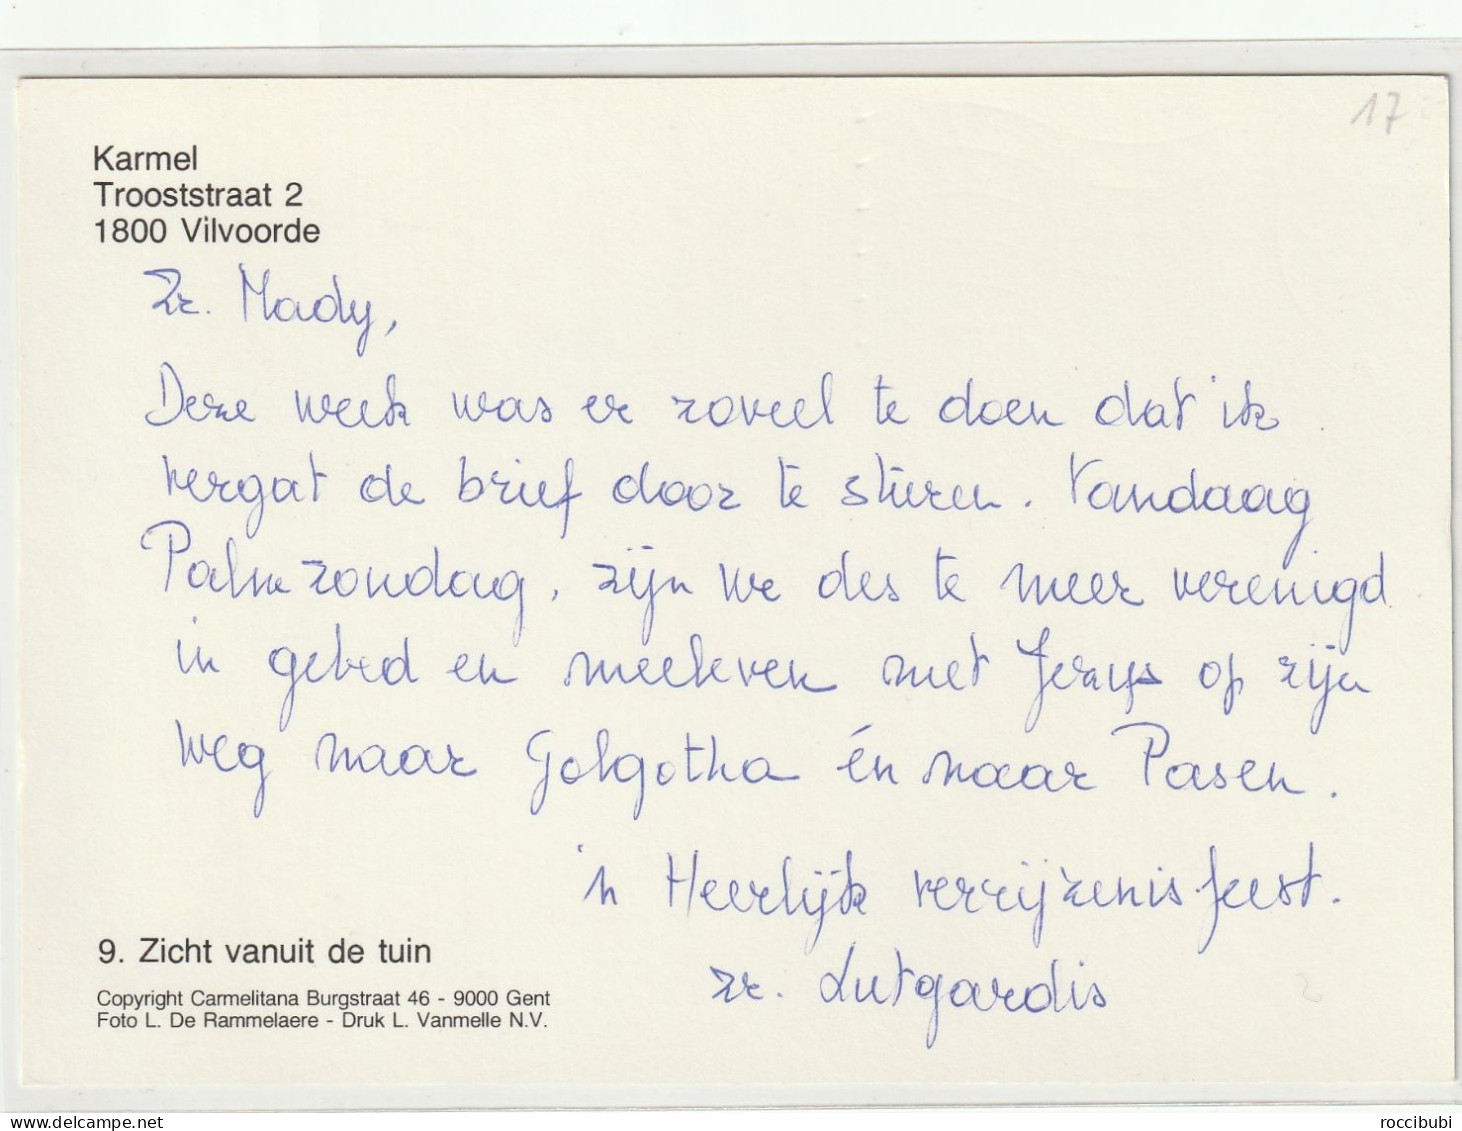 17
Karmel
Trooststraat 2
1800 Vilvoorde
Zr. Mady,
Deze week was er zoveel te doen dat ik
vergat de brief door te sturen. Vandaag
Palmzondag, zijn we des te meer verenigd
in gebed en meeleven met Jezus op zijn
weg naar Golgotha én naar Pasen.
'n Heerlijk verrijzenisfeest.
zr. Lutgardis
9. Zicht vanuit de tuin
Copyright Carmelitana Burgstraat 46 - 9000 Gent
Foto L. De Rammelaere - Druk L. Vanmelle N.V.
www.delcampe.net
roccibubi